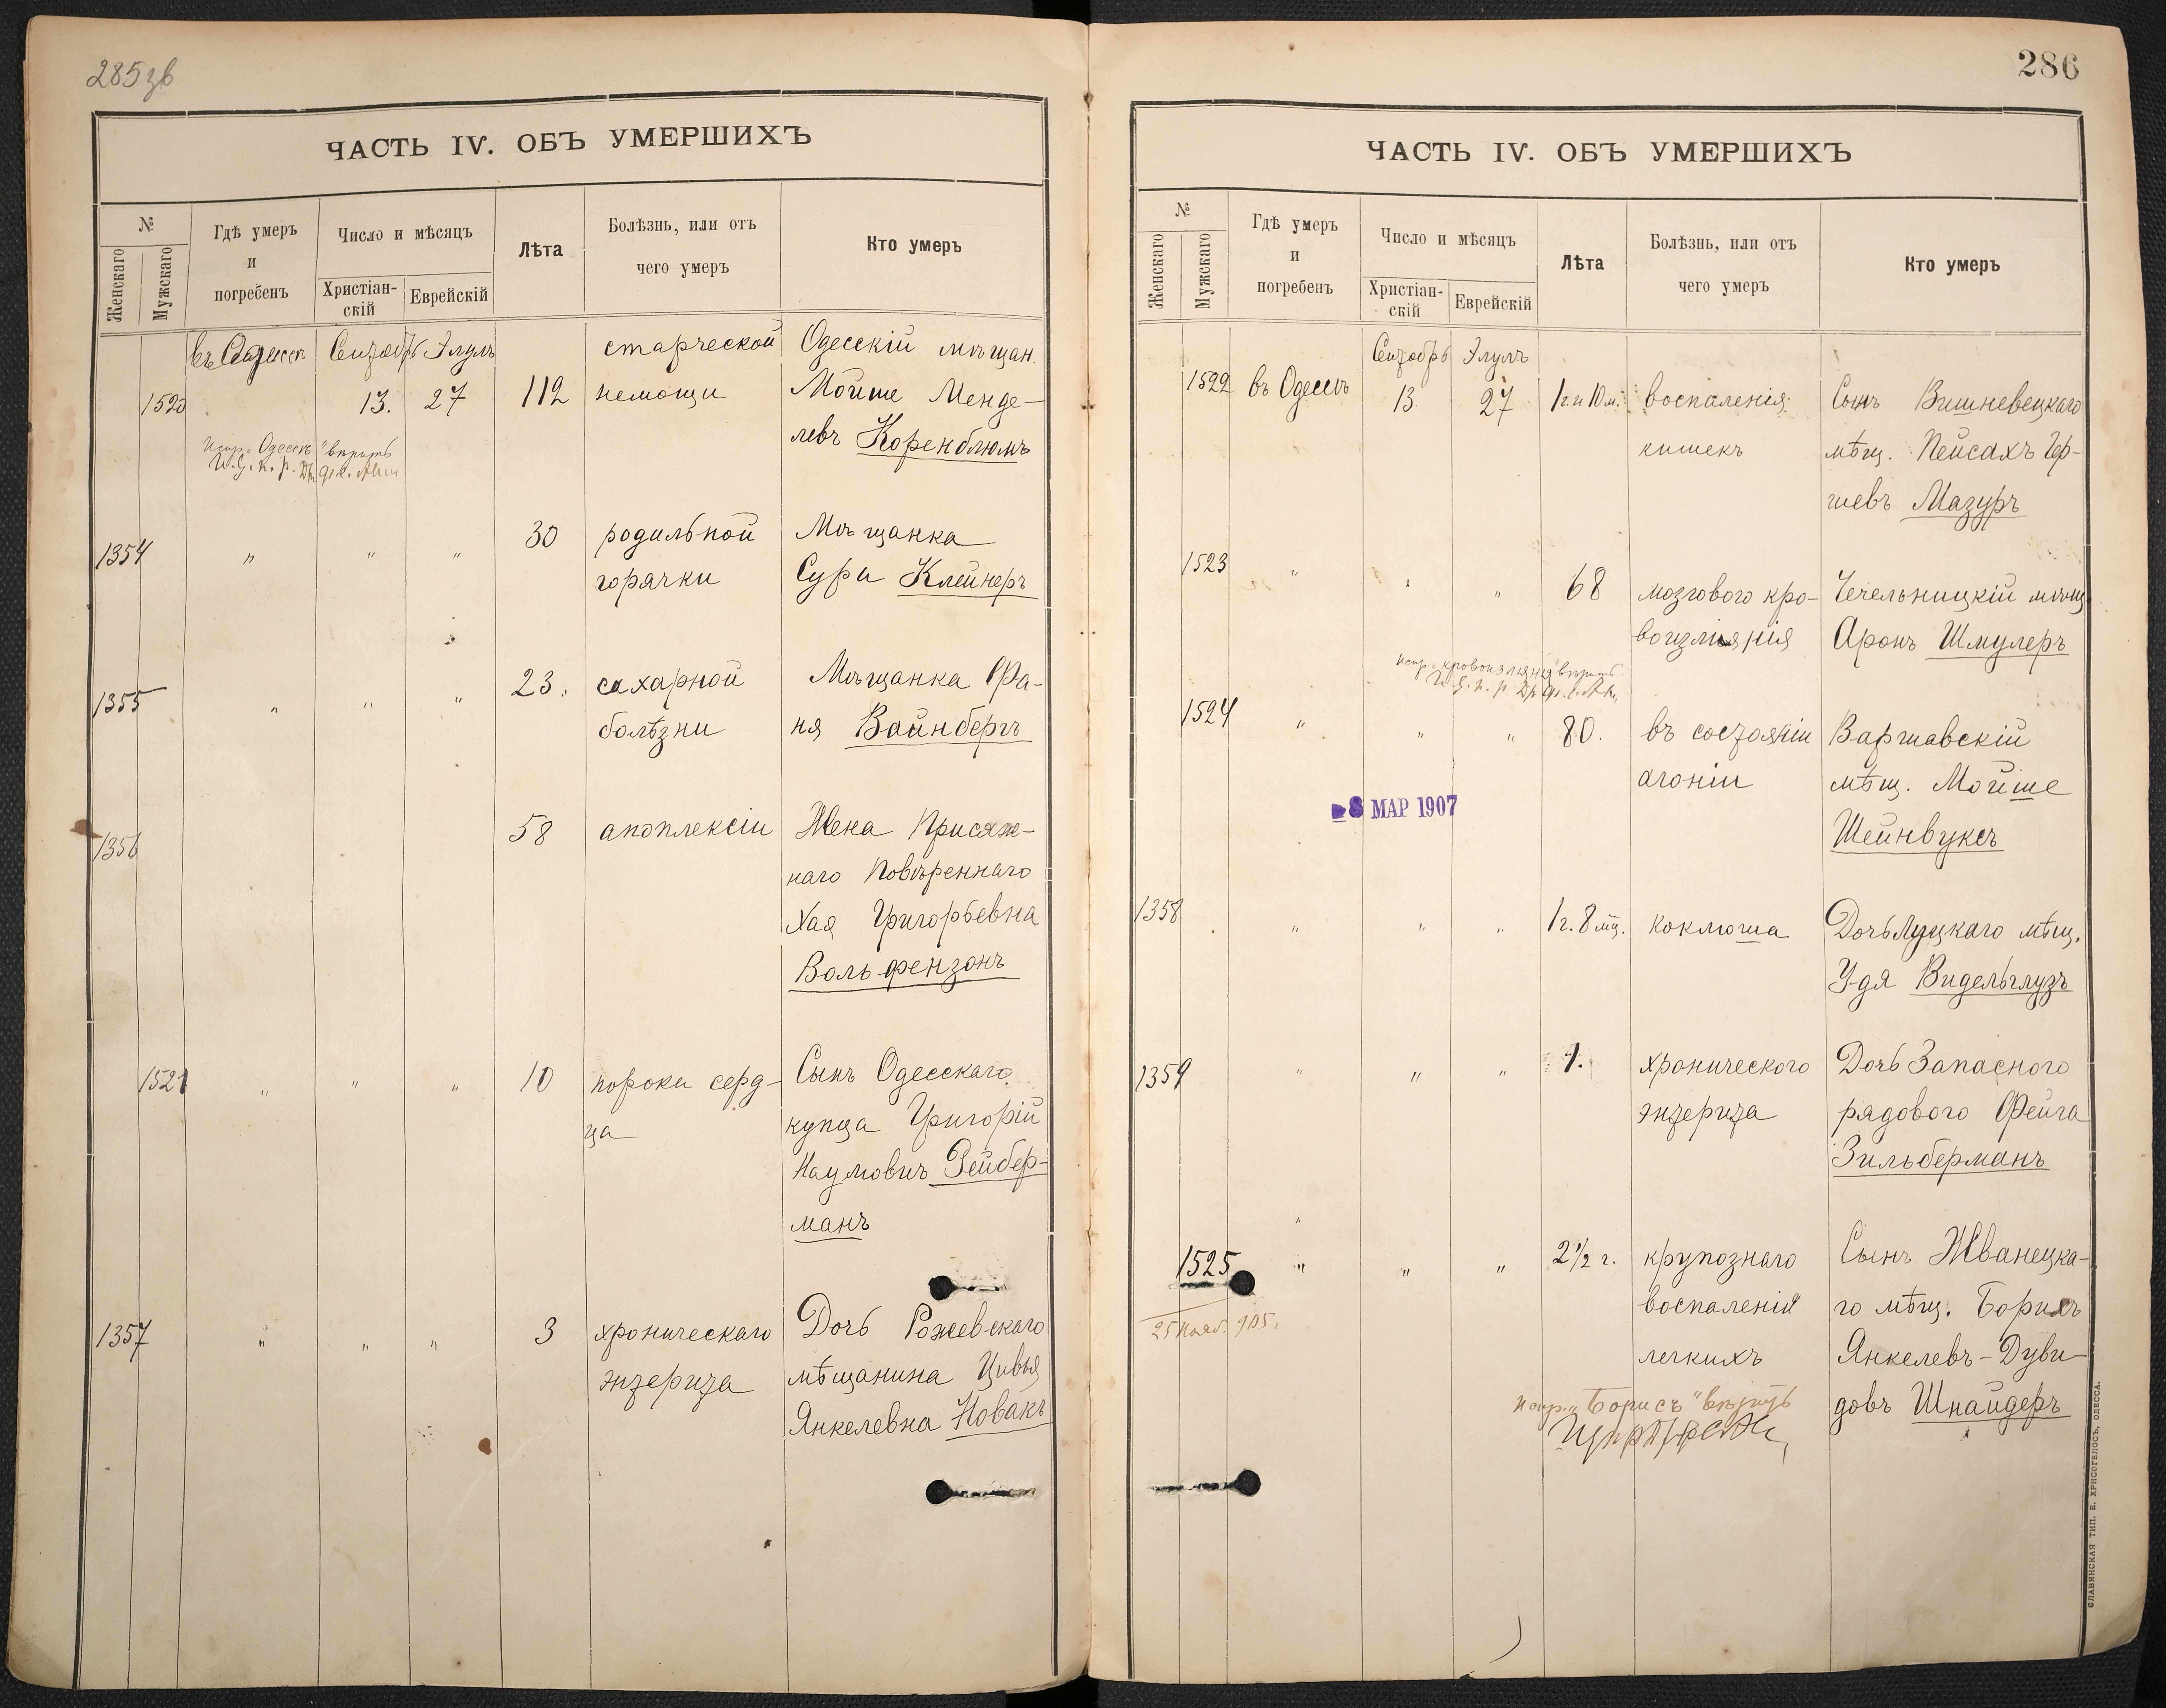 285зв
ЧАСТЬ IV. ОБЪ УМЕРШИХЪ
№
Женскаго
Мужскаго
Гдѣ умеръ
и
погребенъ
Число и мѣсяцъ
Христіан-
скій
Еврейскій
Лѣта
Болѣзнь, или отъ
чего умеръ
Кто умеръ
въ Одессѣ Сентябрь Элулъ старческой Одесскій мѣщан.
1520 13. 27 112 немощи Мойше Менде-
левъ Коренблюмъ
испр. „Одессѣ" вѣрить
1354 " " " 30 родильной Мѣщанка
горячки Сура Клейнеръ
1355 " " " 23. сахарной Мѣщанка Фа-
болѣзни ня Вайнбергъ
1356 58 апоплексіи Жена Присяж-
наго Повѣреннаго
Хая Григорьевна
Вольфензонъ
1521 " " " 10 порока серд- Сынъ Одесскаго
ца купца Григорій
Наумовичъ Гейбер-
манъ
1357 " " " 3 хроническаго Дочь Рожевскаго
энтерита мѣщанина Цивья
Янкелевна Новакъ
286
ЧАСТЬ IV. ОБЪ УМЕРШИХЪ
№
Женскаго
Мужскаго
Гдѣ умеръ
и
погребенъ
Число и мѣсяцъ
Христіан-
скій
Еврейскій
Лѣта
Болѣзнь, или отъ
чего умеръ
Кто умеръ
Сентябрь Элулъ
1522 въ Одессѣ 13 27 1 г. и 10 м. воспаленія Сынъ Вишневецкаго
кишекъ мѣщ. Пейсахъ Гер-
шевъ Мазуръ
1523 " " " 68 мозгового кро- Чечельницкій мѣщ.
воизліянія Аронъ Шмулеръ
испр. „кровоизліянія" вѣрить
1524 " " " 80. въ состояніи Варшавскій
агоніи мѣщ. Мойше
Шейнвуксъ
-8 МАР 1907
1358 " " " 1 г. 8 мц. коклюша Дочь Луцкаго мѣщ.
Удя Видельглузъ
1359 " " " 1. хронического Дочь Запасного
энтерита рядового Фейга
Зильберманъ
1525 " " " 2 1/2 г. крупознаго Сынъ Жванецка-
воспаленія го мѣщ. Борисъ
25 Нояб. 905. легкихъ Янкелевъ-Дуви-
испр. „Борисъ" вѣрить довъ Шнайдеръ
СЛАВЯНСКАЯ ТИП. Е. ХРИСОГЕЛОСЪ, ОДЕССА.